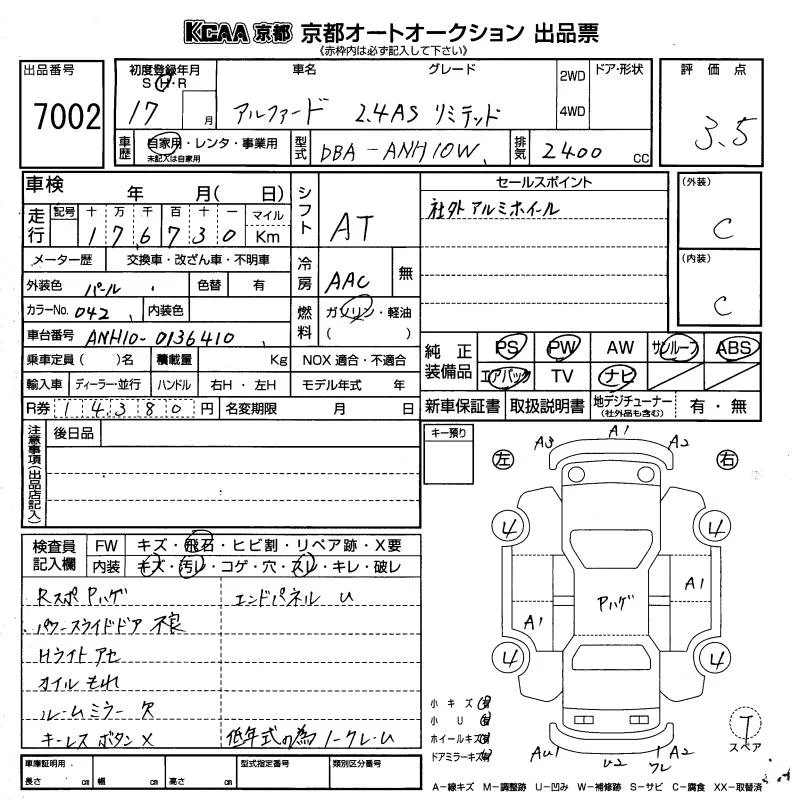 KCAA 京都 京都オートオークション 出品票
《赤枠内は必ず記入して下さい》
出品番号
7002
初度登録年月
S・H・R
17 月
車名 グレード
アルファード 2.4AS リミテッド
2WD
4WD
ドア・形状
車歴
自家用・レンタ・事業用
未記入は自家用
型式
DBA-ANH10W
排気
2400 CC
評価点
3.5
車検 年 月( 日)
走行
記号 十 万 千 百 十 一 マイル
1 7 6 7 3 0 Km
メーター歴 交換車・改ざん車・不明車
外装色 パール 色替 有
カラーNo. 042 内装色
車台番号 ANH10-0136410
乗車定員( )名 積載量 Kg
輸入車 ディーラー・並行 ハンドル 右H・左H
R券 14380円 名変期限 月 日
シフト AT
冷房 AAC 無
燃料 ガソリン・軽油
( )
NOX 適合・不適合
モデル年式 年
セールスポイント
社外アルミホイール
(外装)
C
(内装)
C
純正装備品
PS PW AW サンルーフ ABS
エアバック TV ナビ
新車保証書 取扱説明書 地デジチューナー(社外品も含む) 有・無
注意事項(出品店記入)
後日品
キー預り
検査員記入欄
FW キズ・飛石・ヒビ割・リペア跡・X要
内装 キズ・汚レ・コゲ・穴・スレ・キレ・破レ
Rスポ Pハゲ エンドパネル U
パワースライドドア 不良
Hライトアセ
オイルもれ
ルームミラー欠
キーレスボタンX 低年式の為ノークレーム
左 右
A3 A1 A2
4 4
A1
Pハゲ
A1
4 4
AU1 U2 A2
ワレ
小キズ
小U
ホイールキズ
ドアミラーキズ
T
スペア
車庫証明用
長さ cm 幅 cm 高さ cm
型式指定番号
類別区分番号
A−線キズ M−調整跡 U−凹み W−補修跡 S−サビ C−腐食 XX−取替済